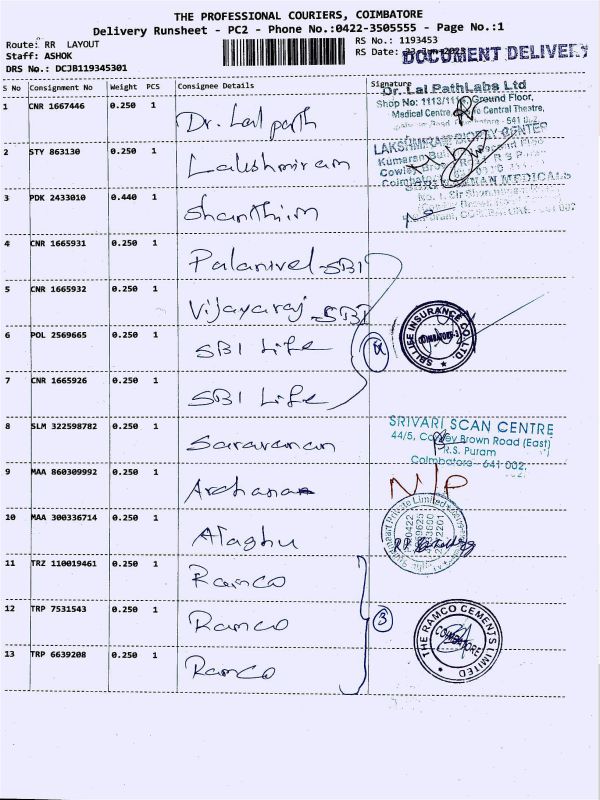 THE PROFESSIONAL COURIERS, COIMBATORE
Delivery Runsheet - PC2 - Phone No.:0422-3505555 - Page No.:1
Route: RR LAYOUT
RS No.: 1193453
Staff: ASHOK
RS Date:
DOCUMENT DELIVERY
DRS No.: DCJB119345301
S No Consignment No Weight PCS Consignee Details Signature
1 CNR 1667446 0.250 1 Dr. Lal path
Dr. Lal PathLabs Ltd
Shop No: 1113/11 Ground Floor,
Medical Centre, Central Theatre,
2 STY 863130 0.250 1 Lakshmiram
LAKSHMIRAM BIOPSY CENTER
Kumaran
Cowley
3 PDK 2433010 0.440 1 Shanthim
MEDICALS
4 CNR 1665931 0.250 1 Palanivel-SBI
5 CNR 1665932 0.250 1 Vijayaraj-SBI
6 POL 2569665 0.250 1 SBI Life
4
SBI LIFE INSURANCE CO. LTD
COIMBATORE-2
7 CNR 1665926 0.250 1 SBI Life
8 SLM 322598782 0.250 1 Saravanan
SRIVARI SCAN CENTRE
44/5, Cowley Brown Road (East)
R.S. Puram
Coimbatore - 641 002.
9 MAA 860309992 0.250 1 Archana
N/P
10 MAA 300336714 0.250 1 Alaghu
Private Limited
11 TRZ 110019461 0.250 1 Ramco
12 TRP 7531543 0.250 1 Ramco
3
THE RAMCO CEMENTS LIMITED
COIMBATORE
13 TRP 6639208 0.250 1 Ramco